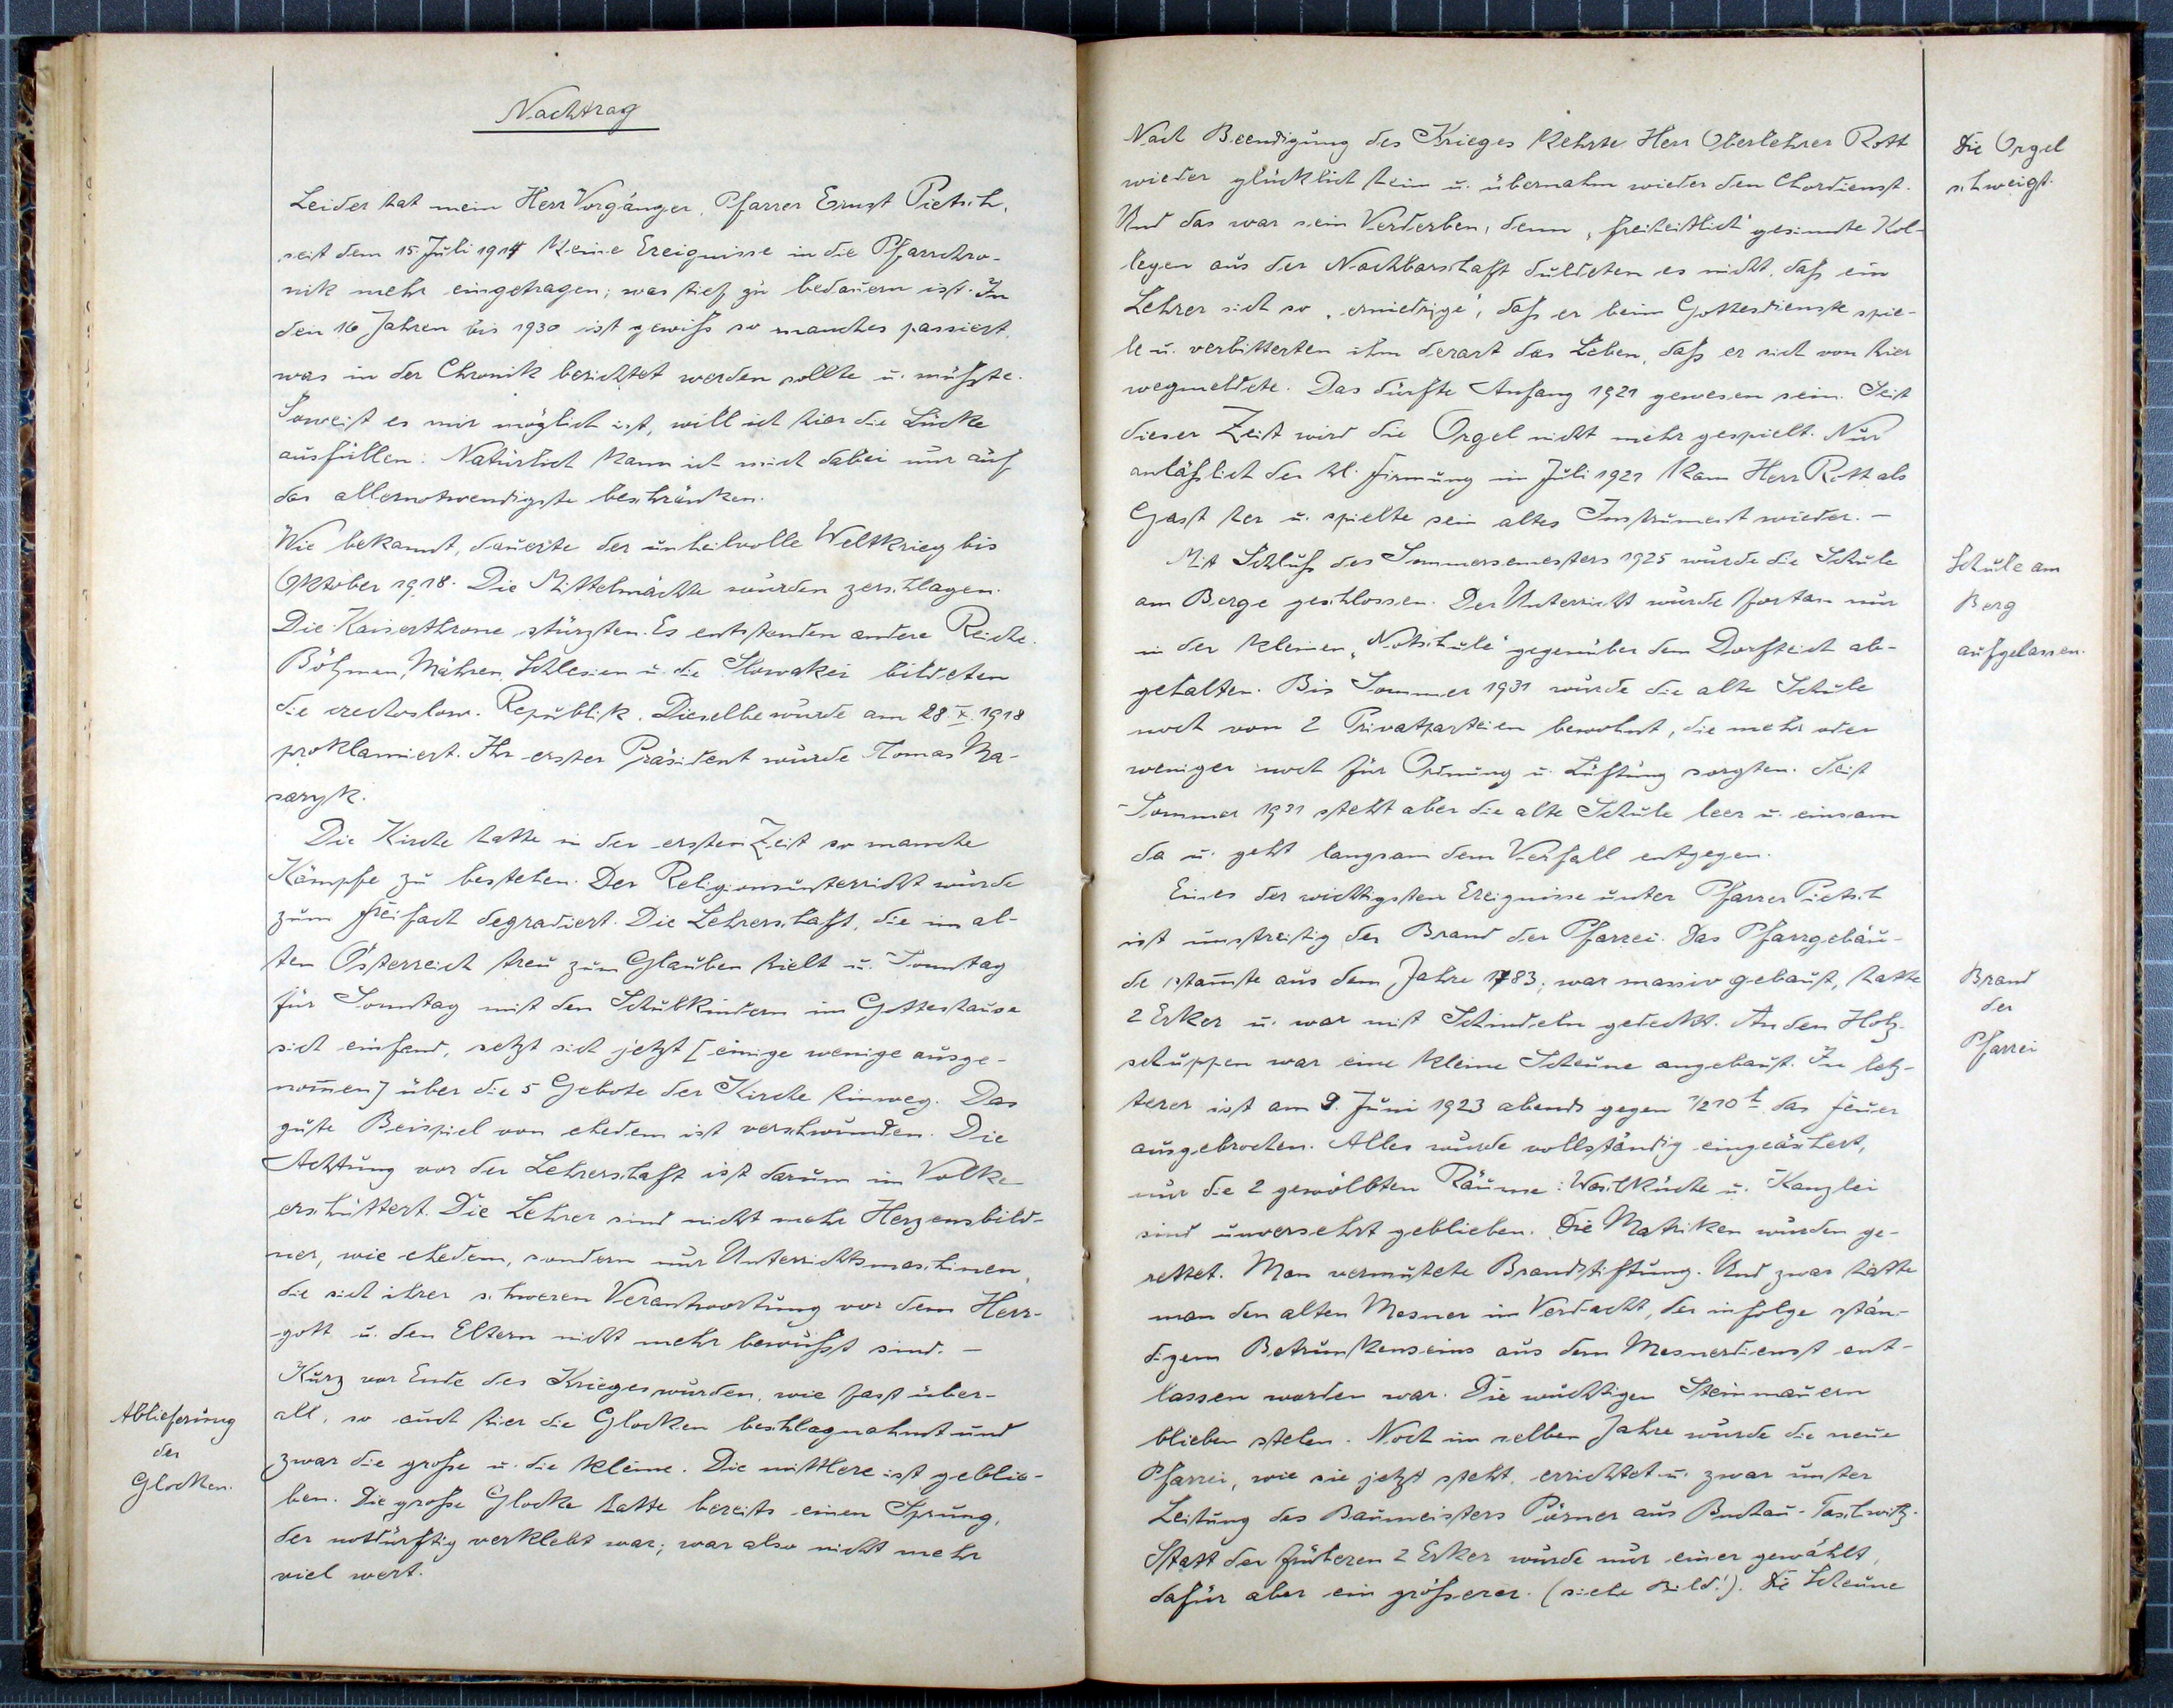 Nachtrag
Leider hat mein Herr Vorgänger, Pfarrer Ernst Pietsch,
seit dem 15. Juli 1914 keine Ereignisse in die Pfarrchro-
nik mehr eingetragen; was tief zu bedauern ist. In
den 16 Jahren bis 1930 ist gewiß so manches passiert,
was in der Chronik berichtet werden sollte u. müßte.
Soweit es mir möglich ist, will ich hier die Lücke
ausfüllen. Natürlich kann ich mich dabei nur auf
das allernotwendigste beschränken.
Wie bekannt, dauerte der unheilvolle Weltkrieg bis
Oktober 1918. Die Mittelmächte wurden zerschlagen.
Die Kaiserthrone stürzten. Es entstanden andere Reiche.
Böhmen, Mähren, Schlesien u. die Slowakei bildeten
die čechoslow. Republik. Dieselbe wurde am 28. X. 1918
proklamiert. Ihr erster Präsident wurde Tomas Ma-
saryk.
Die Kirche hatte in der ersten Zeit so manche
Kämpfe zu bestehen. Der Religionsunterricht wurde
zum Freifach degradiert. Die Lehrerschaft, die im al-
ten Österreich treu zum Glauben hielt u. Sonntag
für Sonntag mit den Schulkindern im Gotteshause
sich einfand, setzt sich jetzt [einige wenige ausge-
nom̄en] über die 5 Gebote der Kirche hinweg. Das
gute Beispiel von ehedem ist verschwunden. Die
Achtung vor der Lehrerschaft ist darum im Volke
erschüttert. Die Lehrer sind nicht mehr Herzensbild-
ner, wie ehedem, sondern nur Unterrichtsmaschinen,
die sich ihrer schweren Verantwortung vor dem Herr-
gott u. den Eltern nicht mehr bewußt sind. –
Kurz vor Ende des Krieges wurden, wie fast über-
all, so auch hier die Glocken beschlagnahmt und
zwar die große u. die kleine. Die mittlere ist geblie-
ben. Die große Glocke hatte bereits einen Sprung,
der notdürftig verklebt war; war also nicht mehr
viel wert.
Ablieferung
der
Glocken.
Nach Beendigung des Krieges kehrte Herr Oberlehrer Rott
wieder glücklich heim u. übernahm wieder den Chordienst.
Und das war sein Verderben, denn „freiheitlich" gesinnte Kol-
legen aus der Nachbarschaft duldeten es nicht, daß ein
Lehrer sich so „erniedrige", daß er beim Gottesdienste spie-
le u. verbitterten ihm derart das Leben, daß er sich von hier
wegmeldete. Das dürfte Anfang 1921 gewesen sein. Seit
dieser Zeit wird die Orgel nicht mehr gespielt. Nur
anläßlich der hl. Firmung im Juli 1921 kam Herr Rott als
Gast her u. spielte sein altes Instrument wieder. –
Mit Schluß des Sommersemesters 1925 wurde die Schule
am Berge geschlossen. Der Unterricht wurde fortan nur
in der kleinen „Notschule" gegenüber dem Dorfteich ab-
gehalten. Bis Sommer 1931 wurde die alte Schule
noch von 2 Privatparteien bewohnt, die mehr oder
weniger noch für Ordnung u. Lüftung sorgten. Seit
Sommer 1931 steht aber die alte Schule leer u. einsam
da u. geht langsam dem Verfall entgegen.
Eines der wichtigsten Ereignisse unter Pfarrer Pietsch
ist unstreitig der Brand der Pfarrei. Das Pfarrgebäu-
de stam̄te aus dem Jahre 1783, war massiv gebaut, hatte
2 Erker u. war mit Schindeln gedeckt. An den Holz-
schuppen war eine kleine Scheune angebaut. In letz-
terer ist am 9. Juni 1923 abends gegen 1/2 10 h das Feuer
ausgebrochen. Alles wurde vollständig eingeäschert,
nur die 2 gewölbten Räume: Waschküche u. Kanzlei
sind unversehrt geblieben. Die Matriken wurden ge-
rettet. Man vermutete Brandstiftung. Und zwar hatte
man den alten Mesner im Verdacht, der infolge stän-
digem Betrunkenseins aus dem Mesnerdienst ent-
lassen worden war. Die wuchtigen Steinmauern
blieben stehen. Noch im selben Jahre wurde die neue
Pfarrei, wie sie jetzt steht, errichtet u. zwar unter
Leitung des Baumeisters Pörner aus Buchau-Taschwitz.
Statt der früheren 2 Erker wurde nur einer gewählt,
dafür aber ein größerer. (siehe Bild!). Die Scheune
Die Orgel
schweigt.
Schule am
Berg
aufgelassen.
Brand
der
Pfarrei